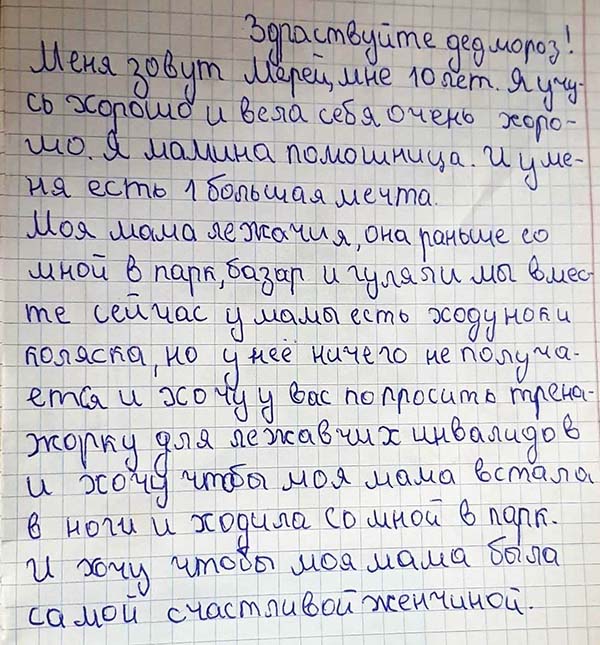 Здраствуйте дед мороз!
Меня зовут Мерей, мне 10 лет. Я учу-
сь хорошо и вела себя очень хоро-
шо. Я мамина помошница. И у ме-
ня есть 1 большая мечта.
Моя мама лежачия, она раньше со
мной в парк, базар и гуляли мы вмес-
те сейчас у мамы есть ходуноки
коляска, но у неё ничего не получа-
ется и хочу у вас попросить трена-
жорку для лежавчих инвалидов
и хочу чтбы моя мама встала
в ноги и ходила со мной в парк.
И хочу чтобы моя мама была
самой счастливой женчиной.